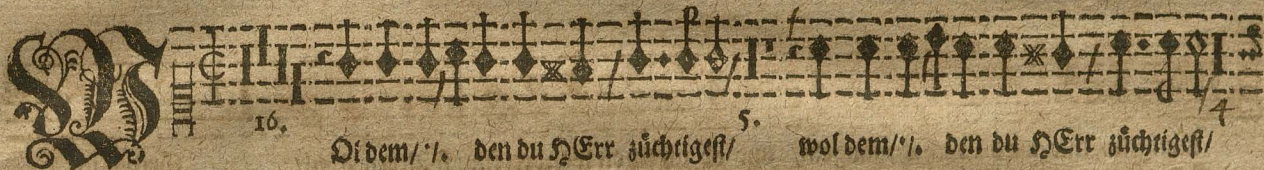 16. 5. 4
WOl dem/ ·/. den du HErr züchtigest/ wol dem/ ·/. den du HErr züchtigest/